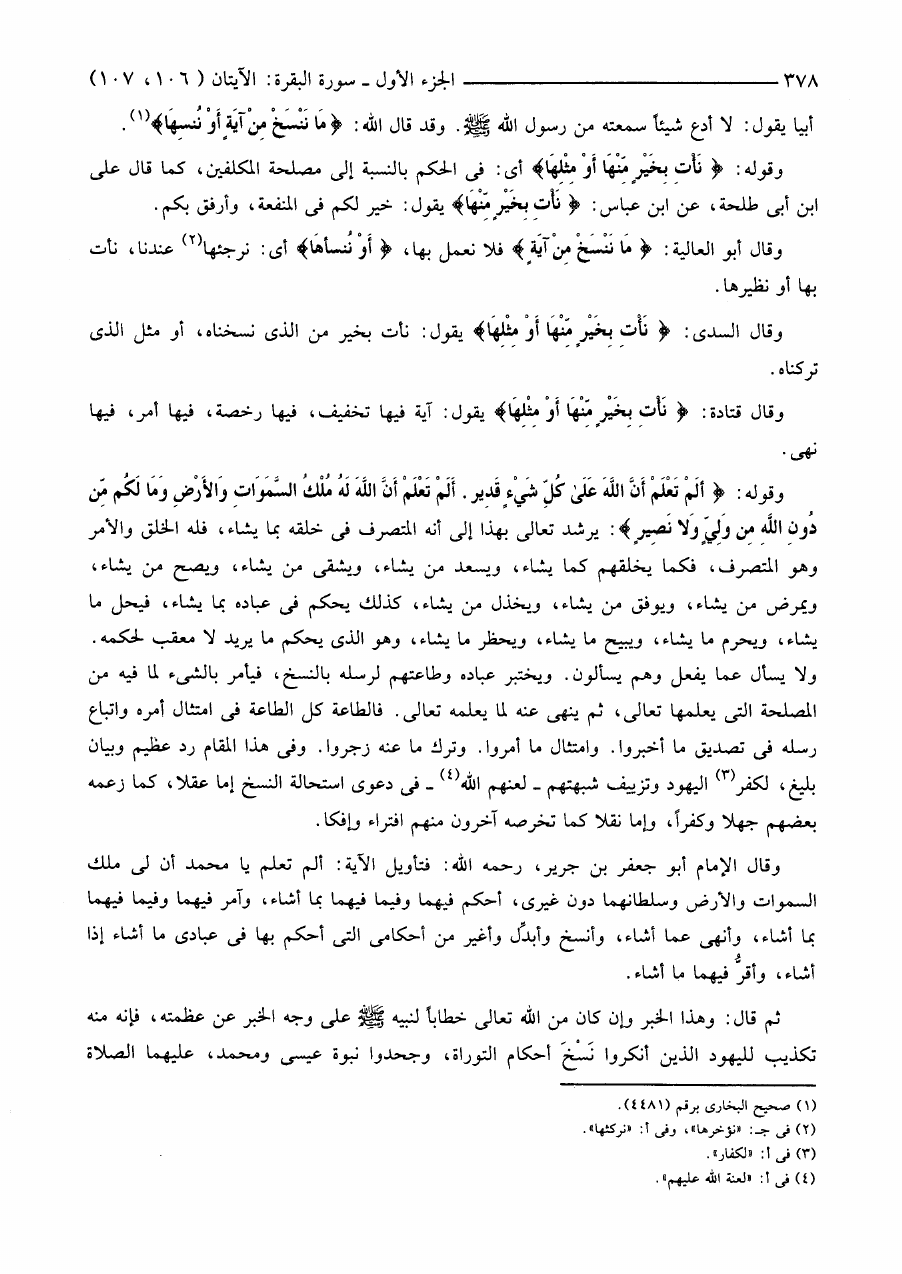 ٣٧٨ ــــــــــــــــــــــــ الجزء الأول ـ سورة البقرة: الآيتان (١٠٦، ١٠٧)
أبيا يقول: لا أدع شيئاً سمعته من رسول الله ﷺ. وقد قال الله: ﴿ مَا نَنْسَخْ مِنْ آيَةٍ أَوْ نُنسِهَا﴾(١).
وقوله: ﴿ نَأْتِ بِخَيْرٍ مِّنْهَا أَوْ مِثْلِهَا﴾ أى: فى الحكم بالنسبة إلى مصلحة المكلفين، كما قال على
ابن أبى طلحة، عن ابن عباس: ﴿ نَأْتِ بِخَيْرٍ مِّنْهَا﴾ يقول: خير لكم فى المنفعة، وأرفق بكم.
وقال أبو العالية: ﴿ مَا نَنْسَخْ مِنْ آيَةٍ ﴾ فلا نعمل بها، ﴿ أَوْ نُنسأهَا﴾ أى: نرجئها(٢) عندنا، نأت
بها أو نظيرها.
وقال السدى: ﴿ نَأْتِ بِخَيْرٍ مِّنْهَا أَوْ مِثْلِهَا﴾ يقول: نأت بخير من الذى نسخناه، أو مثل الذى
تركناه.
وقال قتادة: ﴿ نَأْتِ بِخَيْرٍ مِّنْهَا أَوْ مِثْلِهَا﴾ يقول: آية فيها تخفيف، فيها رخصة، فيها أمر، فيها
نهى.
وقوله: ﴿ أَلَمْ تَعْلَمْ أَنَّ اللَّهَ عَلَىٰ كُلِّ شَيْءٍ قَدِير. أَلَمْ تَعْلَمْ أَنَّ اللَّهَ لَهُ مُلْكُ السَّمَوَاتِ وَالأَرْضِ وَمَا لَكُم مِّن
دُونِ اللَّهِ مِن وَلِيٍّ وَلا نَصِيرٍ ﴾: يرشد تعالى بهذا إلى أنه المتصرف فى خلقه بما يشاء، فله الخلق والأمر
وهو المتصرف، فكما يخلقهم كما يشاء، ويسعد من يشاء، ويشقى من يشاء، ويصح من يشاء،
ويمرض من يشاء، ويوفق من يشاء، ويخذل من يشاء، كذلك يحكم فى عباده بما يشاء، فيحل ما
يشاء، ويحرم ما يشاء، ويبيح ما يشاء، ويحظر ما يشاء، وهو الذى يحكم ما يريد لا معقب لحكمه.
ولا يسأل عما يفعل وهم يسألون. ويختبر عباده وطاعتهم لرسله بالنسخ، فيأمر بالشىء لما فيه من
المصلحة التى يعلمها تعالى، ثم ينهى عنه لما يعلمه تعالى. فالطاعة كل الطاعة فى امتثال أمره واتباع
رسله فى تصديق ما أخبروا. وامتثال ما أمروا. وترك ما عنه زجروا. وفى هذا المقام رد عظيم وبيان
بليغ، لكفر(٣) اليهود وتزييف شبهتهم ـ لعنهم الله(٤) ـ فى دعوى استحالة النسخ إما عقلا، كما زعمه
بعضهم جهلا وكفراً، وإما نقلا كما تخرصه آخرون منهم افتراء وإفكا.
وقال الإمام أبو جعفر بن جرير، رحمه الله: فتأويل الآية: ألم تعلم يا محمد أن لى ملك
السموات والأرض وسلطانهما دون غيرى، أحكم فيهما وفيما فيهما بما أشاء، وآمر فيهما وفيما فيهما
بما أشاء، وأنهى عما أشاء، وأنسخ وأبدِّل وأغير من أحكامى التى أحكم بها فى عبادى ما أشاء إذا
أشاء، وأقرُّ فيهما ما أشاء.
ثم قال: وهذا الخبر وإن كان من الله تعالى خطاباً لنبيه ﷺ على وجه الخبر عن عظمته، فإنه منه
تكذيب لليهود الذين أنكروا نَسْخَ أحكام التوراة، وجحدوا نبوة عيسى ومحمد، عليهما الصلاة
(١) صحيح البخارى برقم (٤٤٨١).
(٢) فى جـ: «نؤخرها»، وفى أ: «نركثها».
(٣) فى أ: «لكفار».
(٤) فى أ: «لعنة الله عليهم».